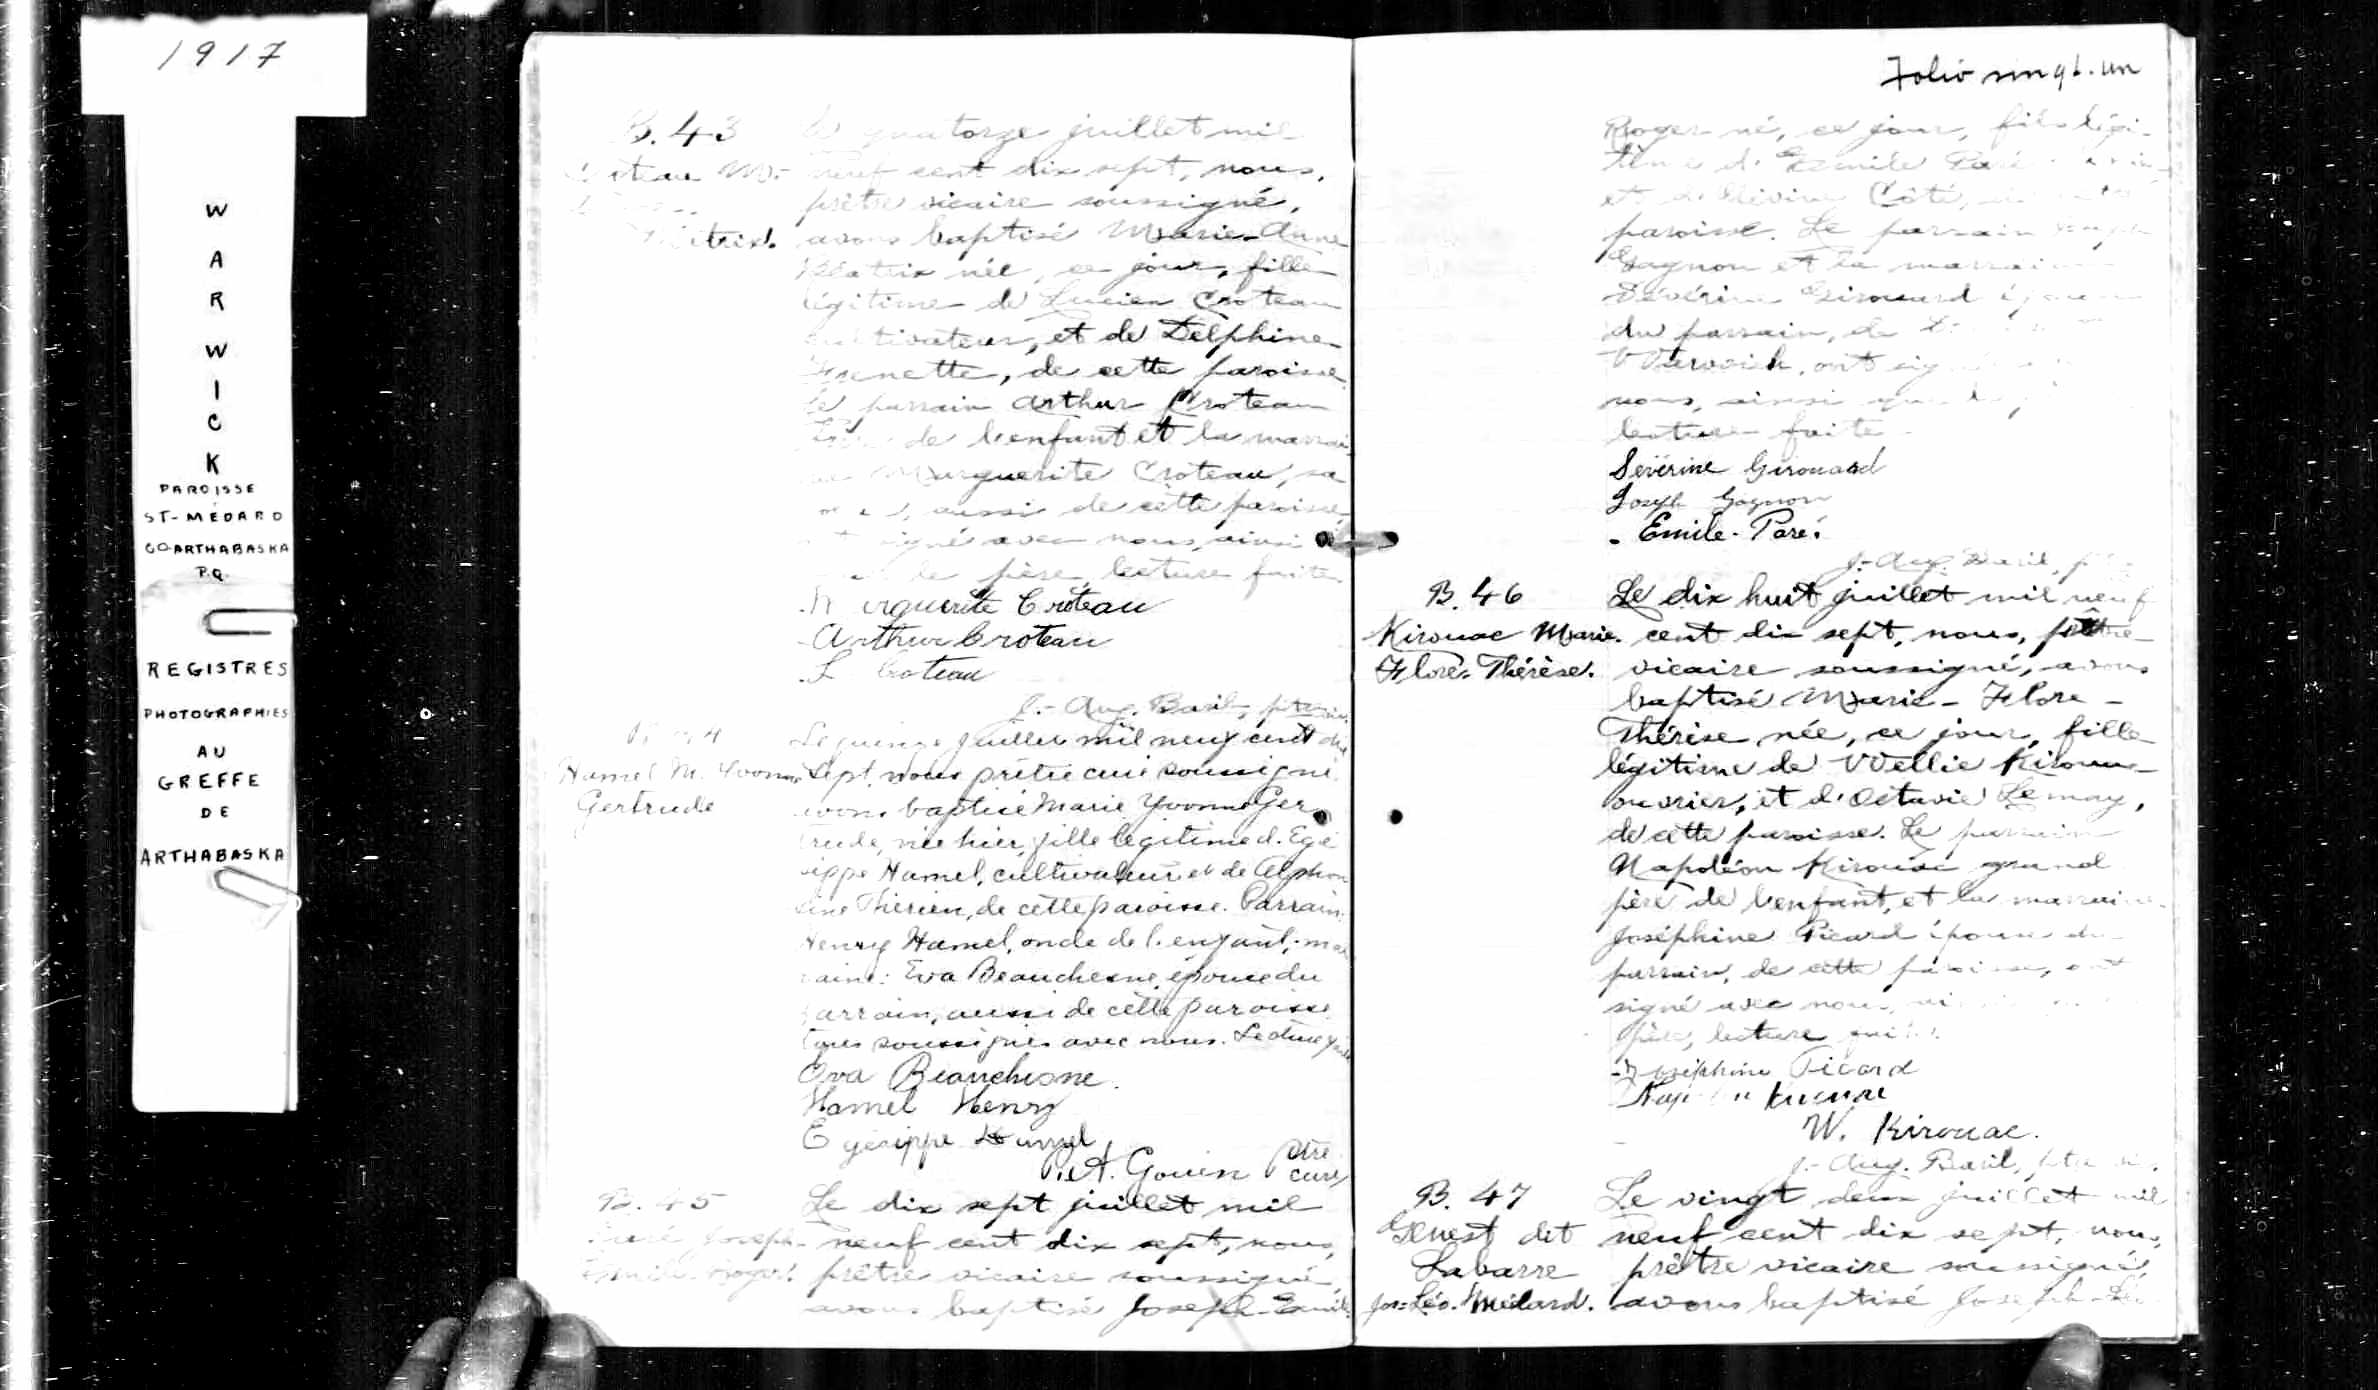 1917
WARWICK
PAROISSE
ST-MÉDARD
CO ARTHABASKA
P.Q.
REGISTRES
PHOTOGRAPHIES
AU
GREFFE
DE
ARTHABASKA
B. 43
quatorze juillet mil
neuf cent dix sept, nous,
prêtre vicaire soussigné,
avons baptisé Marie-Anne
Béatrix née, ce jour, fille
légitime de Lucien Croteau
cultivateur, et de Delphine
de cette paroisse.
parrain Arthur Croteau
de l'enfant et la marrai
Marguerite Croteau, sa
aussi de cette paroisse,
signé avec nous, ainsi
le père, lecture faite.
Marguerite Croteau
Arthur Croteau
L Croteau
J.-Aug. Baril, ptre vic.
Hamel M. Yvonne
Gertrude
Le quinze juillet mil neuf cent dix
sept, nous prêtre curé soussigné
avons baptisé Marie Yvonne Ger
trude, née hier, fille légitime d'Egé
sippe Hamel, cultivateur et de Alphon
sine Therien, de cette paroisse. Parrain:
Henry Hamel, oncle de l'enfant; mar
raine: Eva Beauchesne, épouse du
parrain, aussi de cette paroisse
tous soussignés avec nous. Lecture faite
Eva Beauchesne.
Hamel Henry
Egésippe Hamel
A. Gouin Ptre
curé
B. 45
Joseph-
Emile-Roger.
Le dix sept juillet mil
neuf cent dix sept, nous,
prêtre vicaire soussigné,
avons baptisé Joseph-Emile
Folio vingt-un
Roger né, ce jour, fils légi-
time d'Emile Paré
et Côté,
paroisse. Le parrain Joseph
Gagnon et la marraine
Sévérine Girouard épouse
du parrain, de
Warwick, ont signé
nous, ainsi que le
lecture faite.
Sévérine Girouard
Joseph Gagnon
Emile-Paré.
J.-Aug. Baril,
B. 46
Kirouac Marie-
Flore-Thérèse.
Le dix huit juillet mil neuf
cent dix sept, nous, prêtre
vicaire soussigné, avons
baptisé Marie-Flore-
Thérèse née, ce jour, fille
légitime de Wellie Kirouac
ouvrier, et d'Octavie Lemay,
de cette paroisse. Le parrain
Napoléon Kirouac grand
père de l'enfant, et la marraine
Joséphine Picard épouse du
parrain, de cette paroisse, ont
signé avec nous,
père, lecture faite.
Joséphine Picard
W. Kirouac.
J.-Aug. Baril, ptre vic.
B. 47
Genest dit
Labarre
Jos-Léo-Médard.
Le vingt deux juillet mil
neuf cent dix sept, nous,
prêtre vicaire soussigné,
avons baptisé Joseph-Léo